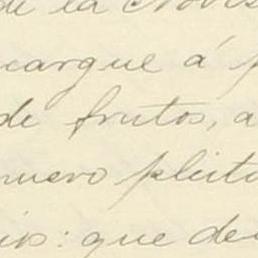 de la Novis
cargue á p
de frutos, a
nuevo pleito
ios: que de